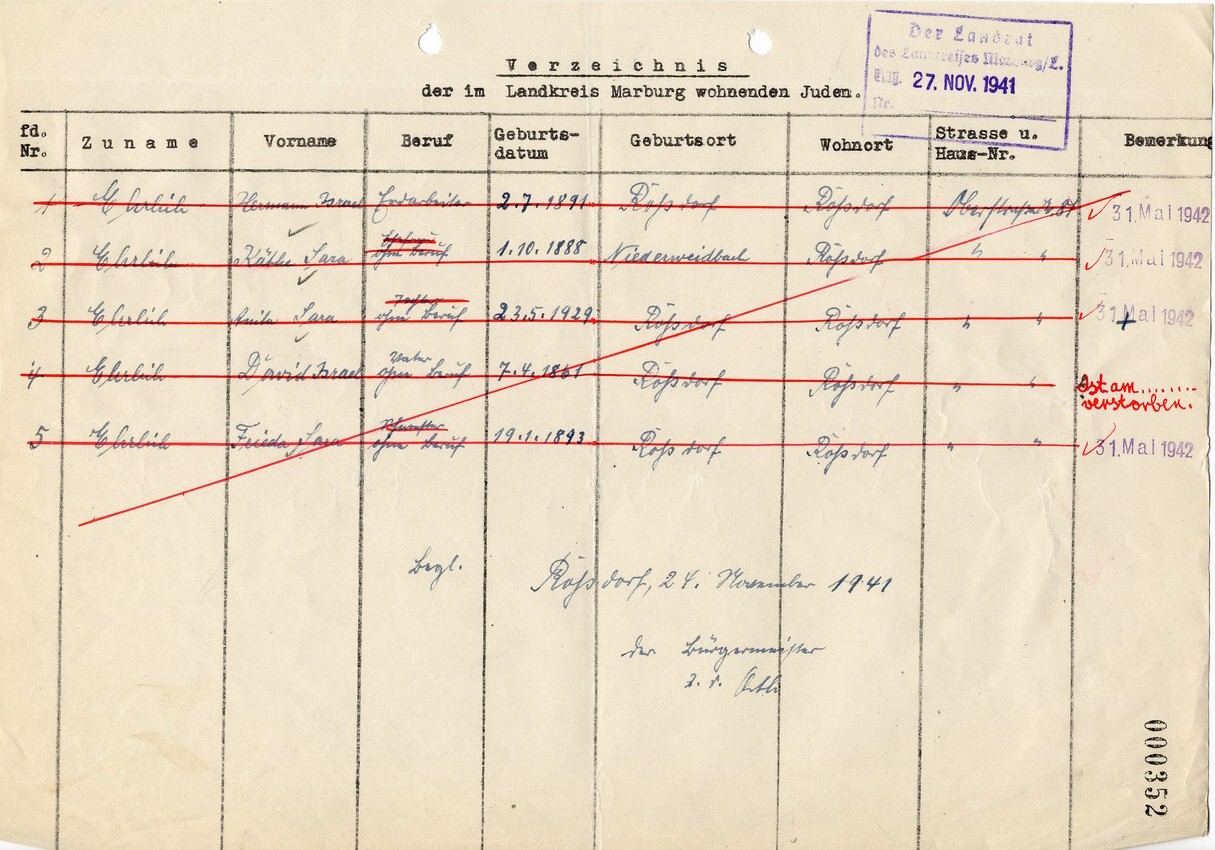 Verzeichnis
der im Landkreis Marburg wohnenden Juden.
Der Landrat
des Landkreises Marburg/L.
Eing. 27. NOV. 1941
Nr.
fd. Nr. Zuname Vorname Beruf Geburts-datum Geburtsort Wohnort Strasse u. Haus-Nr. Bemerkung
1 Ehrlich Hermann Israel Erdarbeiter 2.7.1891 Roßdorf Roßdorf 31. Mai 1942
2 Ehrlich Käthe Sara ohne Beruf 1.10.1888 Niederweidbach Roßdorf " " 31. Mai 1942
3 Ehrlich Anita Sara Tochter ohne Beruf 23.5.1929 Roßdorf Roßdorf " " 31. Mai 1942
4 Ehrlich David Israel Vater ohne Beruf 7.4.1861 Roßdorf Roßdorf " " Ist am ........ verstorben.
5 Ehrlich Frieda Sara Schwester ohne Beruf 19.1.1893 Roßdorf Roßdorf " " 31. Mai 1942
Begl.
Roßdorf, 24. November 1941
der Bürgermeister
000352